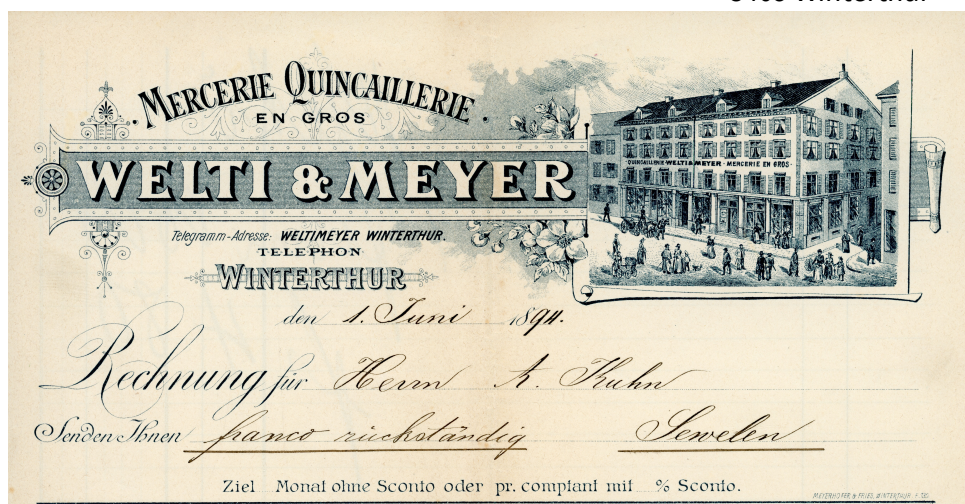 Winterthur
MERCERIE QUINCAILLERIE
EN GROS
WELTI & MEYER
QUINCAILLERIE WELTI & MEYER - MERCERIE EN GROS
Telegramm-Adresse: WELTIMEYER WINTERTHUR.
TELEPHON
WINTERTHUR
den 1. Juni 1894.
Rechnung für Herrn A. Kuhn
Senden Ihnen franco rückständig Sewelen
Ziel Monat ohne Sconto oder pr. comptant mit % Sconto.
MEYERHOFER & FRIES, WINTERTHUR